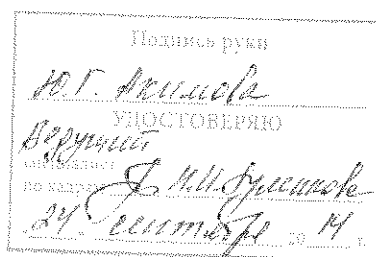 Подпись руки
Ю.Г. Акимова
УДОСТОВЕРЯЮ
Ведущий
специалист
по кадрам М.И. Булгакова
24 сентября 20 14 г.